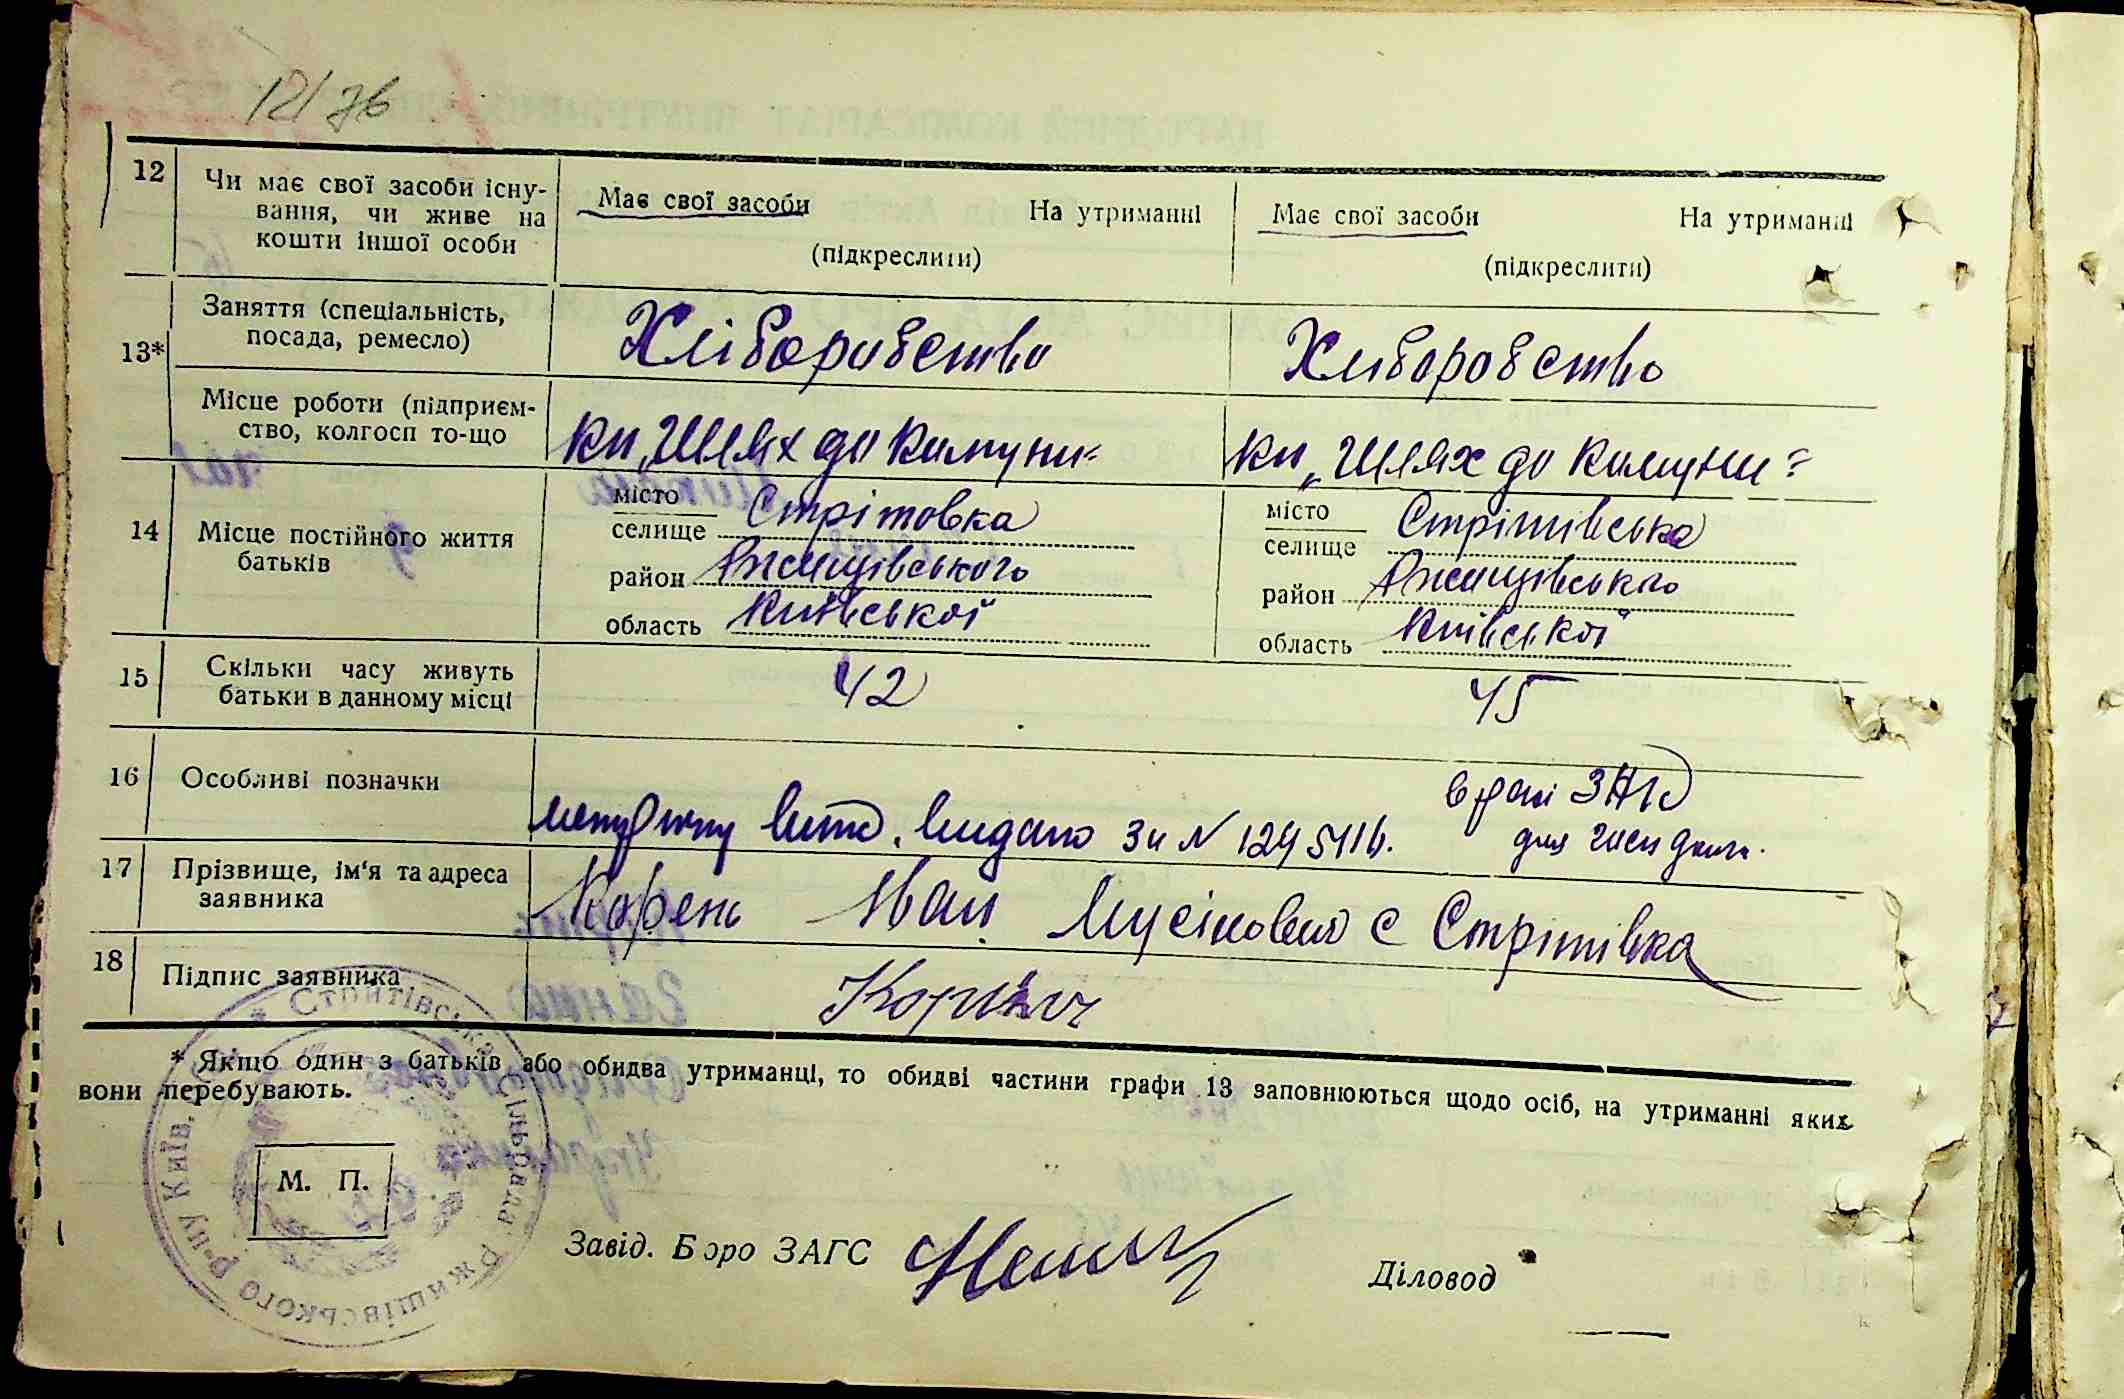 12/76
12 Чи має свої засоби існу-
вання, чи живе на
кошти іншої особи
Має свої засоби На утриманні
(підкреслити)
Має свої засоби На утриманні
(підкреслити)
13* Заняття (спеціальність,
посада, ремесло)
Хліборобство
Хліборобство
Місце роботи (підприєм-
ство, колгосп то-що
кп „Шлях до комуни"
кп „Шлях до комуни"
14 Місце постійного життя
батьків
місто
селище Стрітовка
район Ржищівського
область Київської
місто
селище Стрітівська
район Ржищівського
область Київської
15 Скільки часу живуть
батьки в данному місці
42
45
16 Особливі позначки
видано за № 129
17 Прізвище, ім'я та адреса
заявника
Корень Іван Мусійович с Стрітівка
18 Підпис заявника
* Якщо один з батьків або обидва утриманці, то обидві частини графи 13 заповнюються щодо осіб, на утриманні яких
вони перебувають.
Стритівська Сільрада Ржищівського р-ну Київ.
М. П.
Завід. Бюро ЗАГС
Діловод